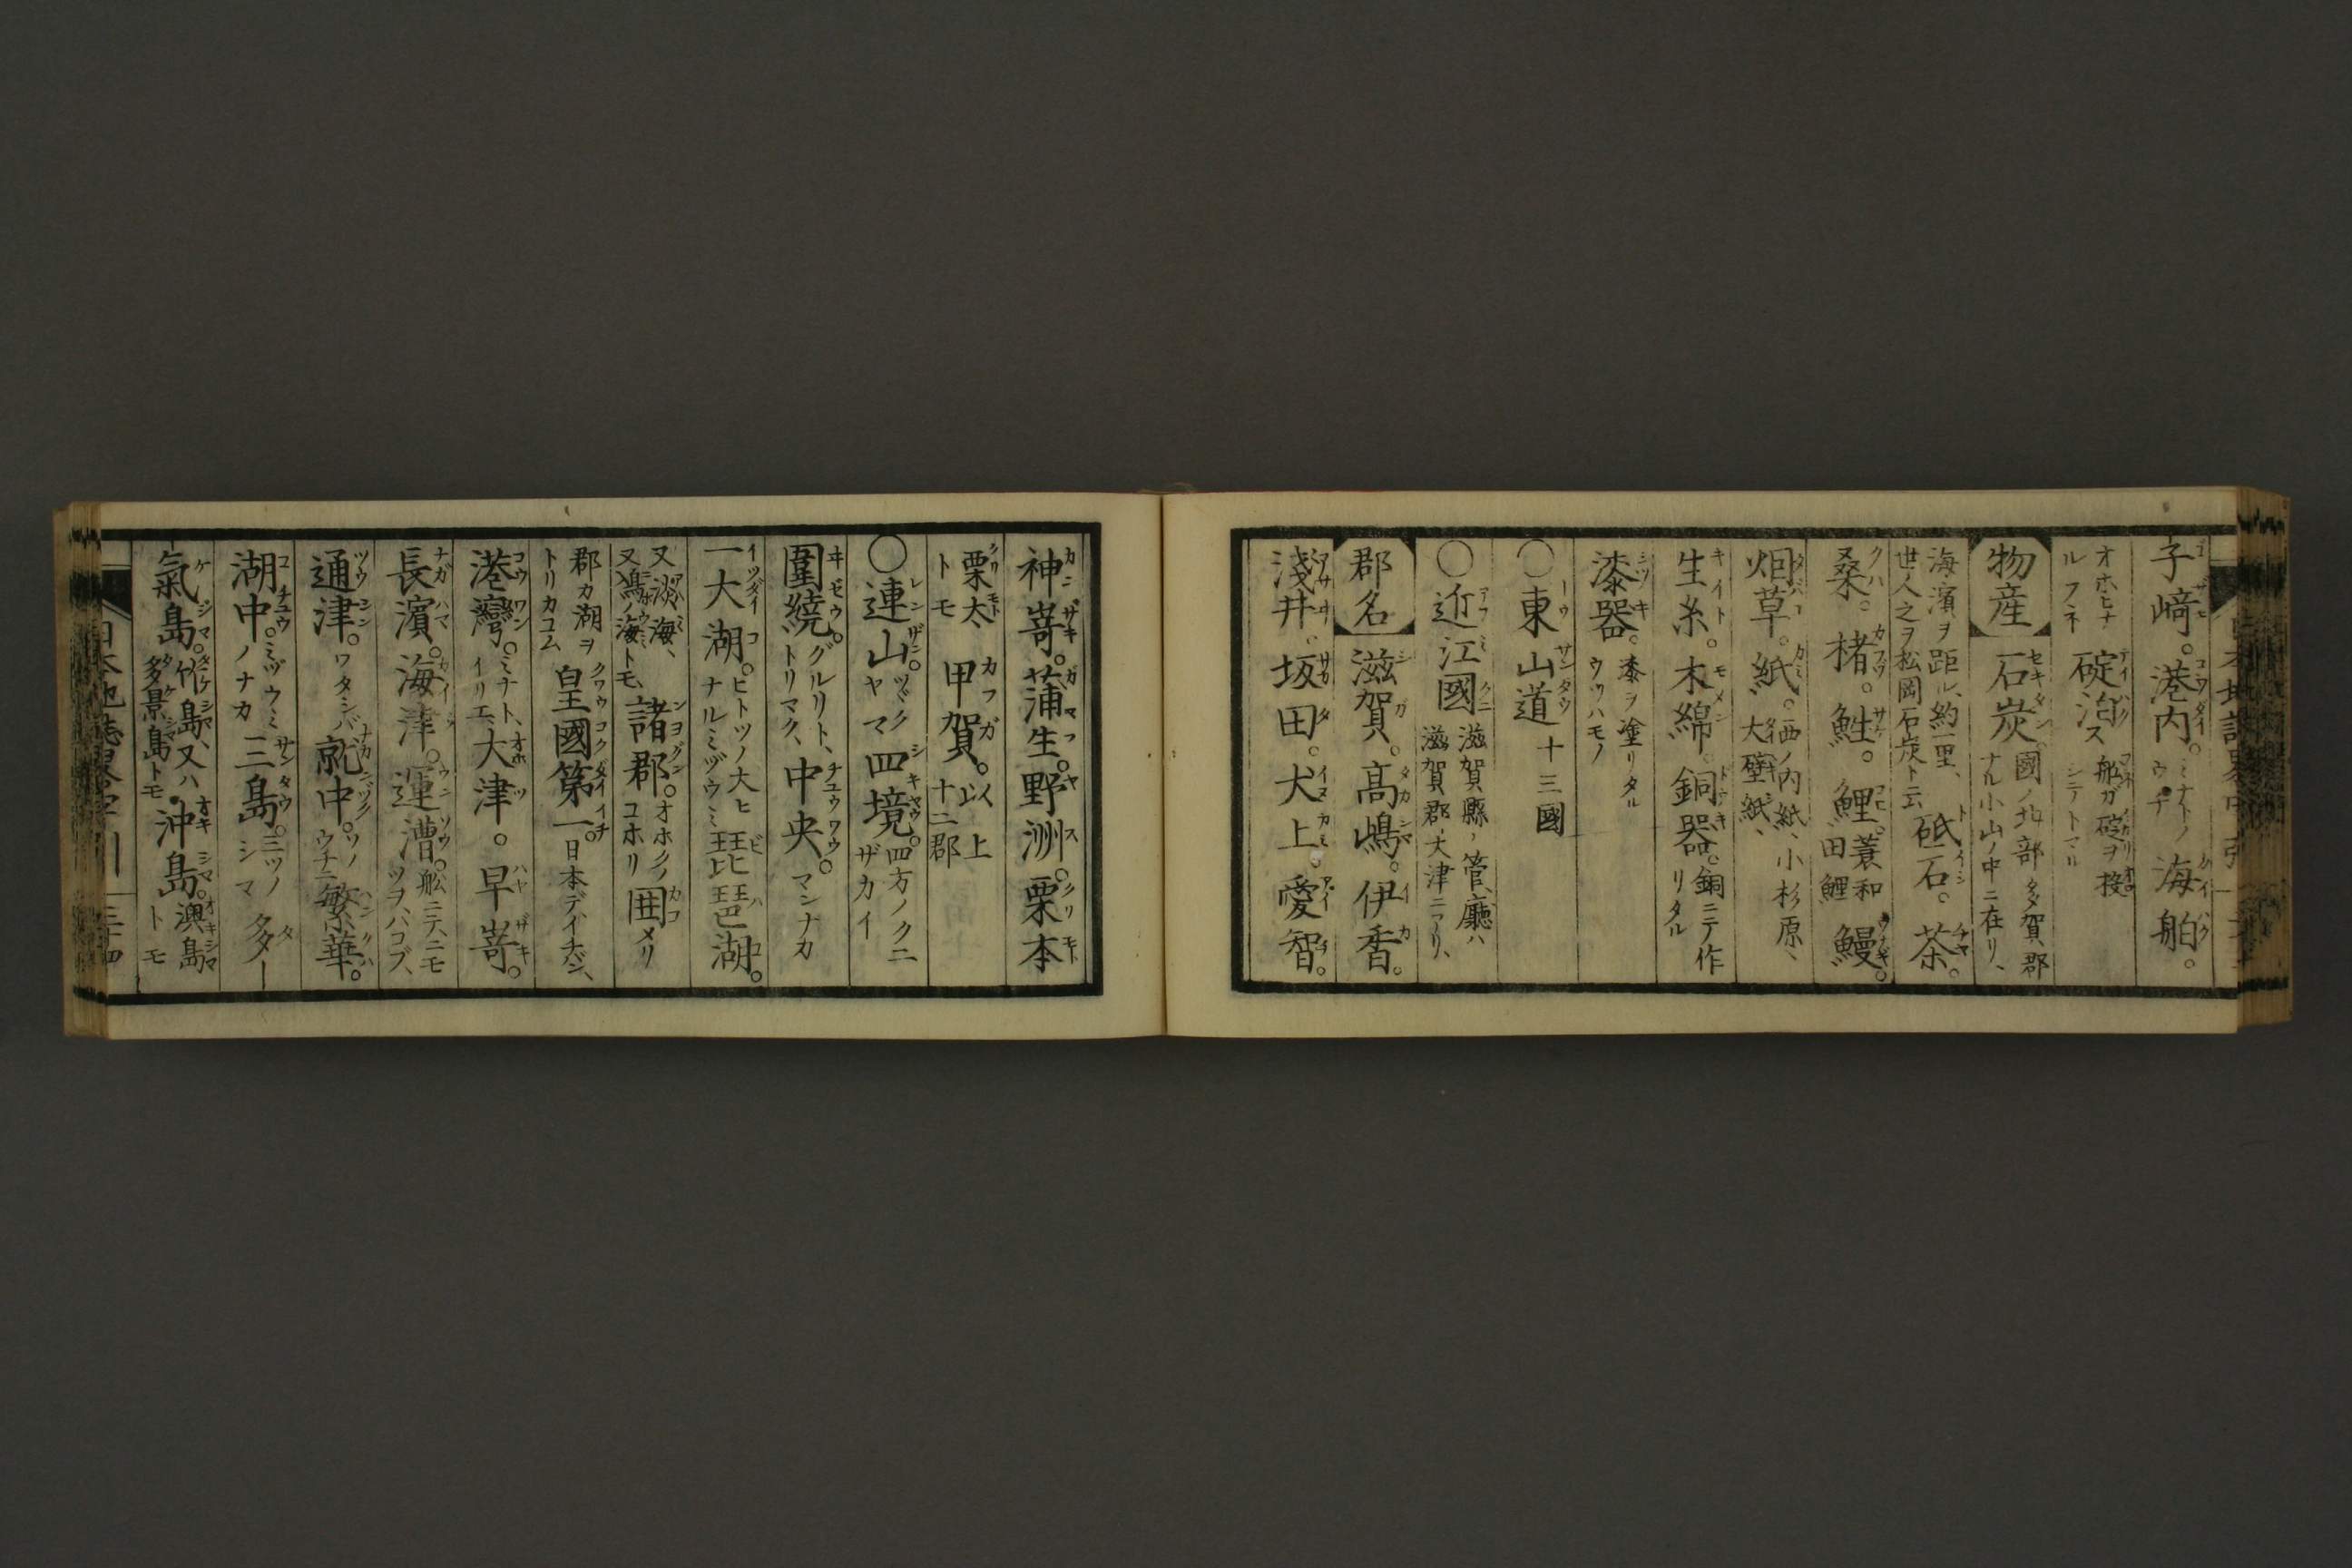 子﨑。港内。ミナトノウチ海舶。
オホヒナルフネ碇泊ス船ガ碇ヲ投シテトマル
物産 石炭國ノ北部多賀郡ナル小山ノ中ニ在リ、
海濱ヲ距ル、約一里、世ノ人之ヲ松岡石炭ト云砥石。茶。
桑。楮。鮏。鯉。蓑和田鯉鰻。
烟草。紙。西ノ内紙、小杉原、大壁紙、
生糸。木綿。銅器。銅ニテ作リタル
漆器。漆ヲ塗リタルウツハモノ
〇東山道十三國
〇近江國滋賀縣ノ管、廳ハ滋賀郡大津ニアリ、
郡名 滋賀。高嶋。伊香。
淺井。坂田。犬上。愛智。
神嵜。蒲生。野洲。栗本
栗太トモ甲賀。以上十二郡
〇連山。ツヾクヤマ四境。四方ノクニザカイ
圍繞。グルリト、トリマク、中央。マンナカ
一大湖。ヒトツノ大ヒナルミヅウミ琵琶湖。
又淡海、又鳰ノ海トモ、諸郡。オホクノコホリ囲メリ
郡カ湖ヲトリカコム皇國第一。日本デイチバン、
港灣。ミナト、イリエ、大津。早嵜。
長濱。海津。運漕。舩ニテ、ニモツヲ、ハコブ、
通津。ワタシバ、就中。ソノウチニ繁華。
湖中。ミヅウミノナカ三島。三ツノシマ多
氣島。竹島、又ハ多景島トモ沖島。澳島トモ
三十四